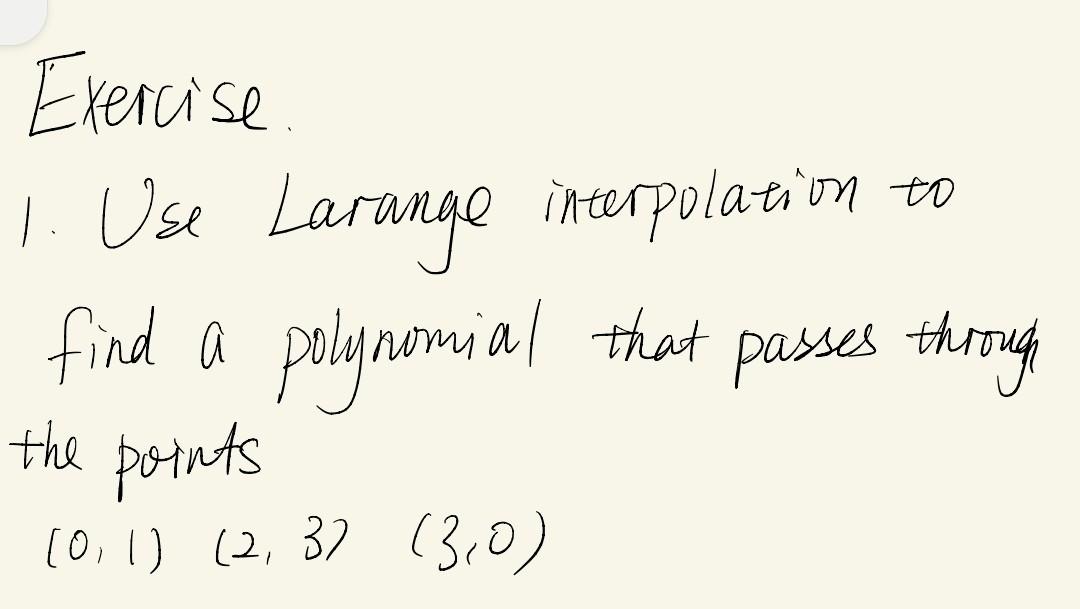 Exercise.
1. Use Larange interpolation to
find a polynomial that passes through
the points
(0, 1) (2, 3) (3, 0)